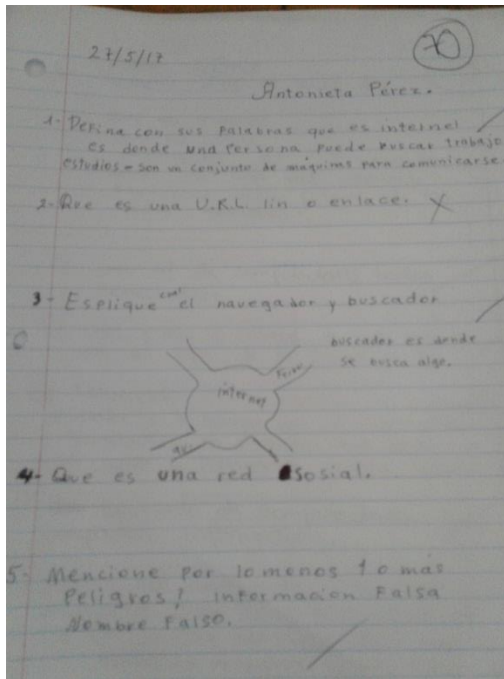 27/5/17
70
Antonieta Pérez.
1- Defina con sus palabras que es internet
es donde una persona puede buscar trabajo
estudios - son un conjunto de máquinas para comunicarse
2- Que es una U.R.L lin o enlace. X
3- Esplique el navegador y buscador
buscador es donde
se busca algo.
internet
4- Que es una red sosial.
5- Mencione por lo menos 1 o más
Peligros! Informacion Falsa
Nombre Falso.